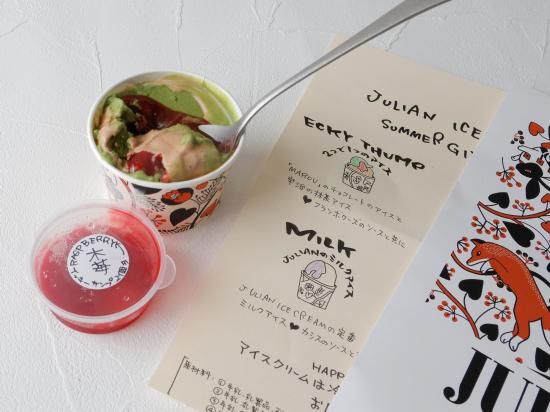 JULIAN ICE
SUMMER GI
ECKY THUMP
「MAROU」のチョコレートのアイスと
宇治の抹茶アイス
♥フランボワーズのソースと共に
MILK
JULIANのミルクアイス
JULIAN ICE CREAMの定番
ミルクアイス ♥ カシスのソースと
HAPP
アイスクリームは
お
「原材料:①牛乳、乳製品
②牛乳、乳
③牛乳
RASPBERRY
木苺
JU